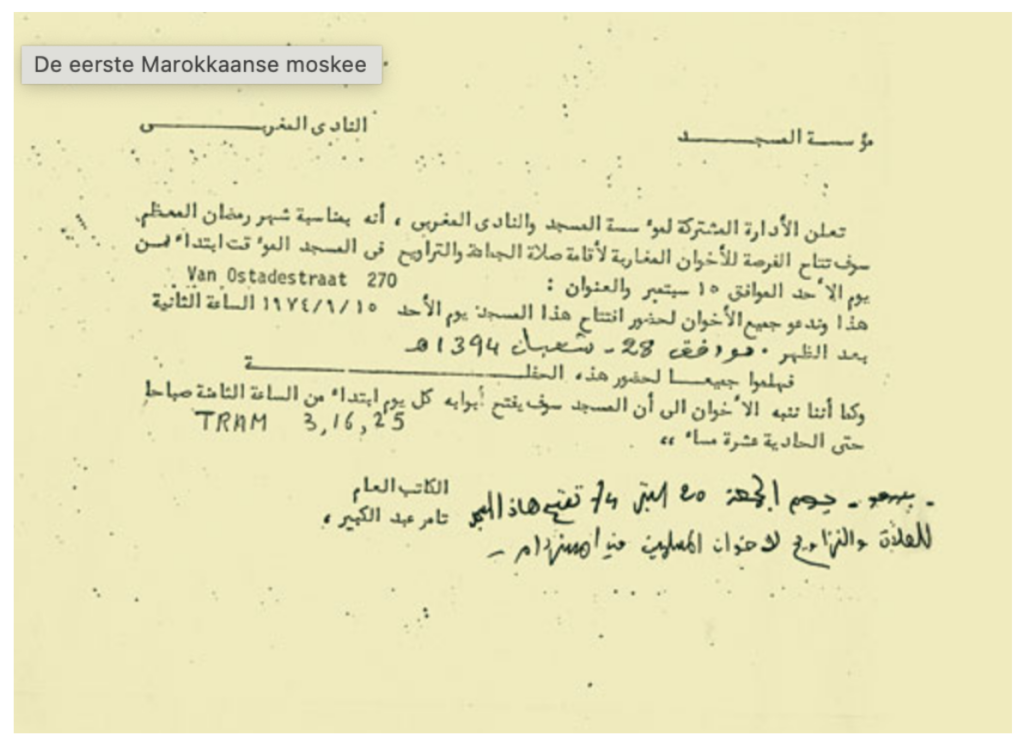 De eerste Marokkaanse moskee
مؤسسة المسجد
النادى المغربى
تعلن الأدارة المشتركة لموٴسسة المسجد والنادى المغربى ، أنه بمناسبة شهر رمضان المعظم.
سوف تتاح الفرصة للأخوان المغاربة لأقامة صلاة الجماعة والتراويح فى المسجد الموٴقت ابتداء من
يوم الأحد الموافق ١٥ سبتمبر والعنوان : Van Ostadestraat 270
هذا وندعو جميع الأخوان لحضور افتتاح هذا المسجد يوم الأحد ١٩٧٤/٩/١٥ الساعة الثانية
بعد الظهر . موافق 28 - شعبان 1394هـ
فهلموا جميعا لحضور هذه الحفلة
وكما أننا ننبه الأخوان الى أن المسجد سوف يفتح أبوابه كل يوم ابتداء من الساعة الثامنة صباحا
حتى الحادية عشرة مساء ،،
TRAM 3,16,25
الكاتب العام
تامر عبد الكبير ،
يوم الجمعة 20 74 تفتح هاذ
للصلاة والتراويح لاخوان المسلمين في امستردام -